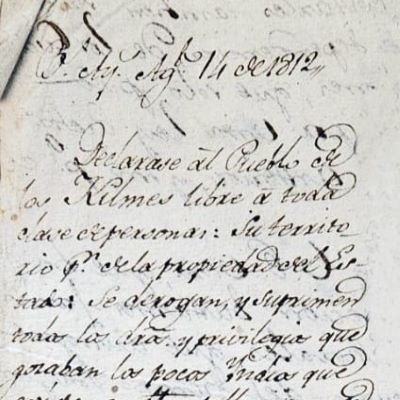 Bs. Ays. Agto. 14 de 1812,,
Declarase al Pueblo de
los Kilmes libre a toda
clase de personas: Su territo
rio pr. de la propiedad del Es-
tado: Se derogan, y suprimen
todos los dros. y privilegios que
gozaban los pocos Indios que